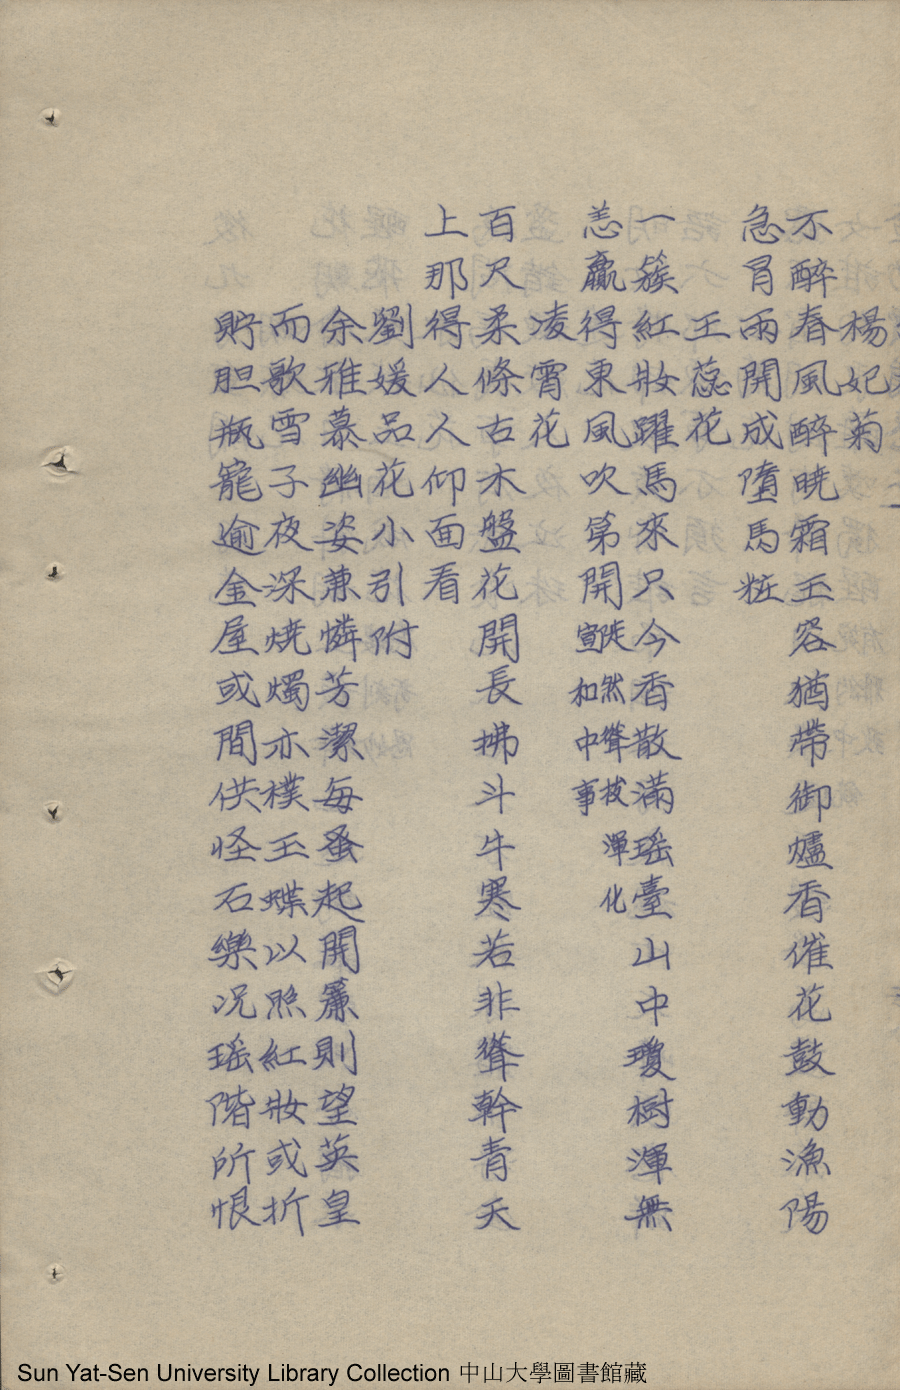 楊妃菊
不醉春風醉曉霜玉容猶帶御爐香催花鼓動漁陽
急冐雨開成墮馬粧
玉蕊花
一簇紅妝躍馬來只今香散滿瑤臺山中瓊樹渾無
恙贏得東風吹第開
徙然聳拔渾化
宣和中事
凌霄花
百尺柔條古木盤花開長拂斗牛寒若非聳幹青天
上那得人人仰面看
劉媛品花小引附
余雅慕幽姿兼憐芳潔每蚤起開簾則望英皇
而歌雪子夜深燒燭亦樸玉蝶以照紅妝或折
貯胆瓶寵逾金屋或間供怪石樂况瑤階所恨
Sun Yat-Sen University Library Collection 中山大學圖書館藏